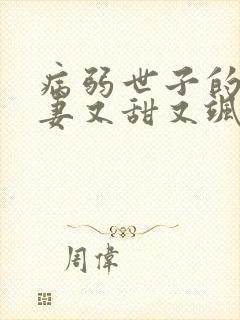 病弱世子的
妻又甜又飒
周偉